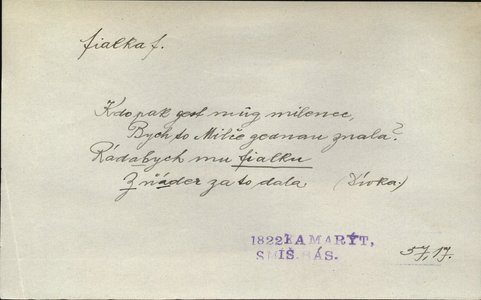 fialka f.
Kdo pak gest můg milenec,
Bych to Milče gednau znala?
Ráda bych mu fialku
Z ňáder za to dala (Dívka.)
1822 KAMARÝT,
SMÍŠ. BÁS.
57, 17.